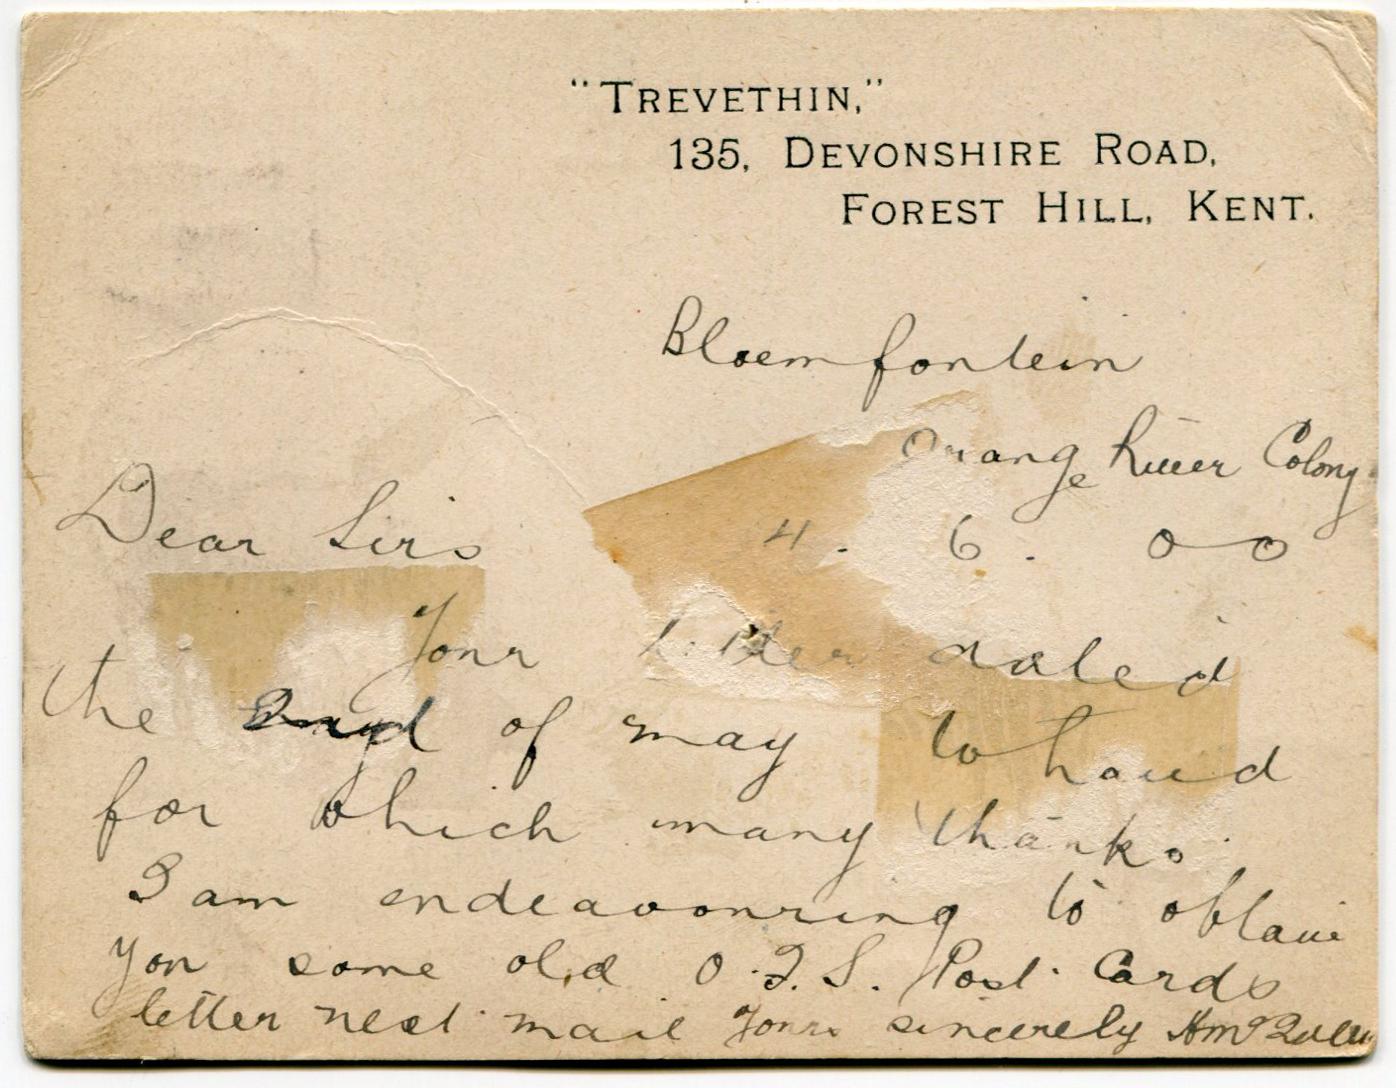 "TREVETHIN,"
135, DEVONSHIRE ROAD,
FOREST HILL, KENT.
Bloemfontein
Orange River Colony
4. 6. 00
Dear Sirs
Your letter dated
the 2nd of may to hand
for which many thanks
I am endeavouring to obtain
you some old O.F.S. Post Cards
letter next mail Yours sincerely